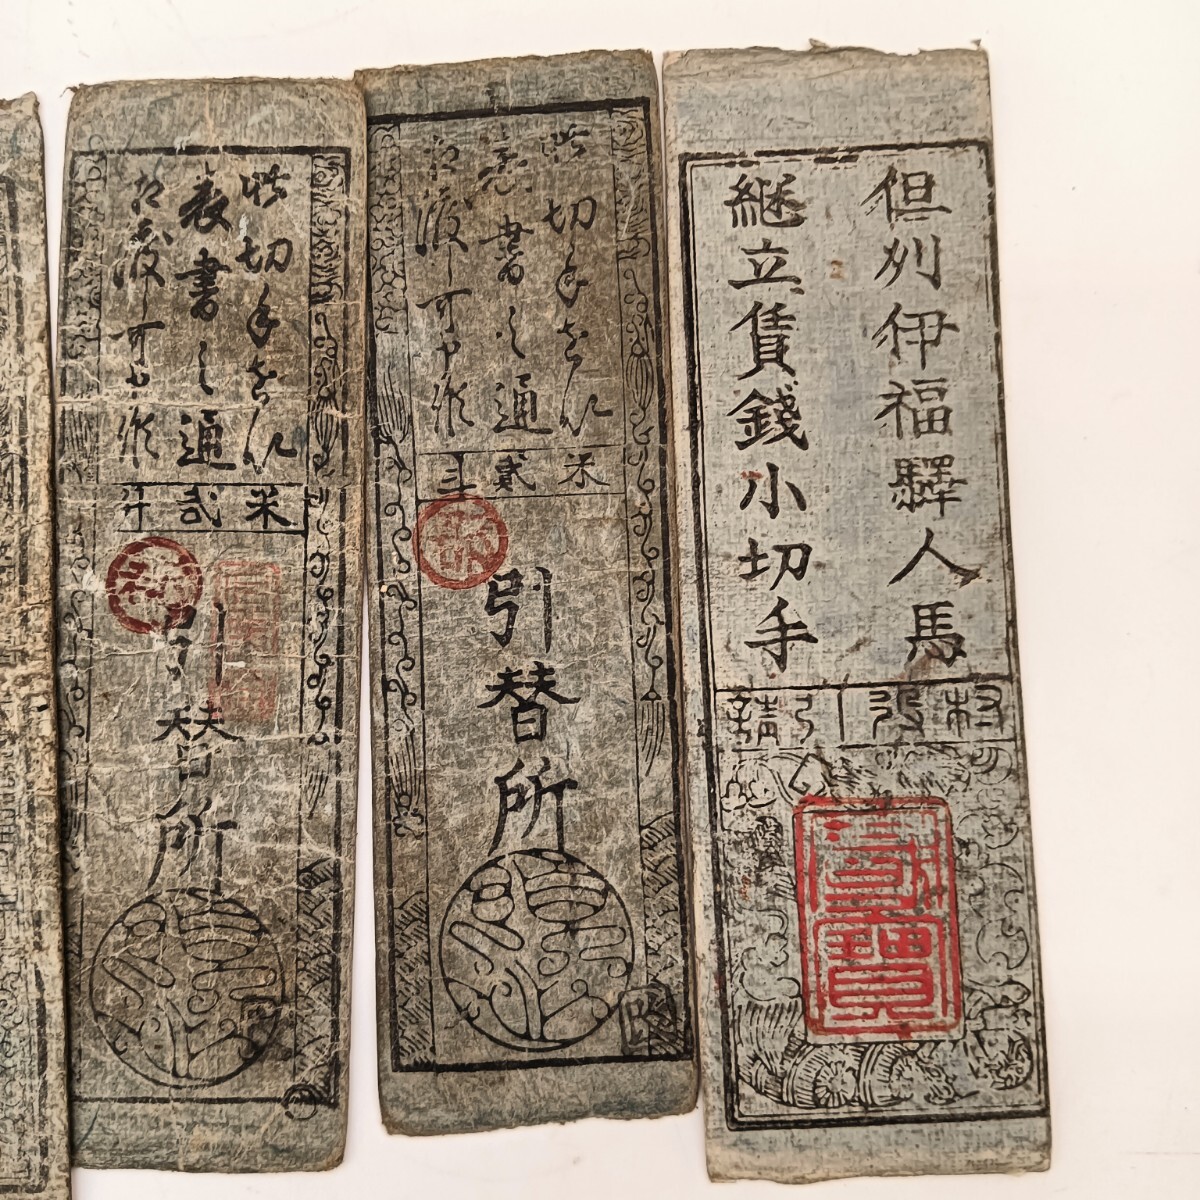 但刕伊福驛人馬
継立賃錢小切手
村役引請
此切手を以
表書之通
相渡し可申候
米貳斗
引替所
此切手を以
表書之通
相渡し可申候
米弐斗
引替所